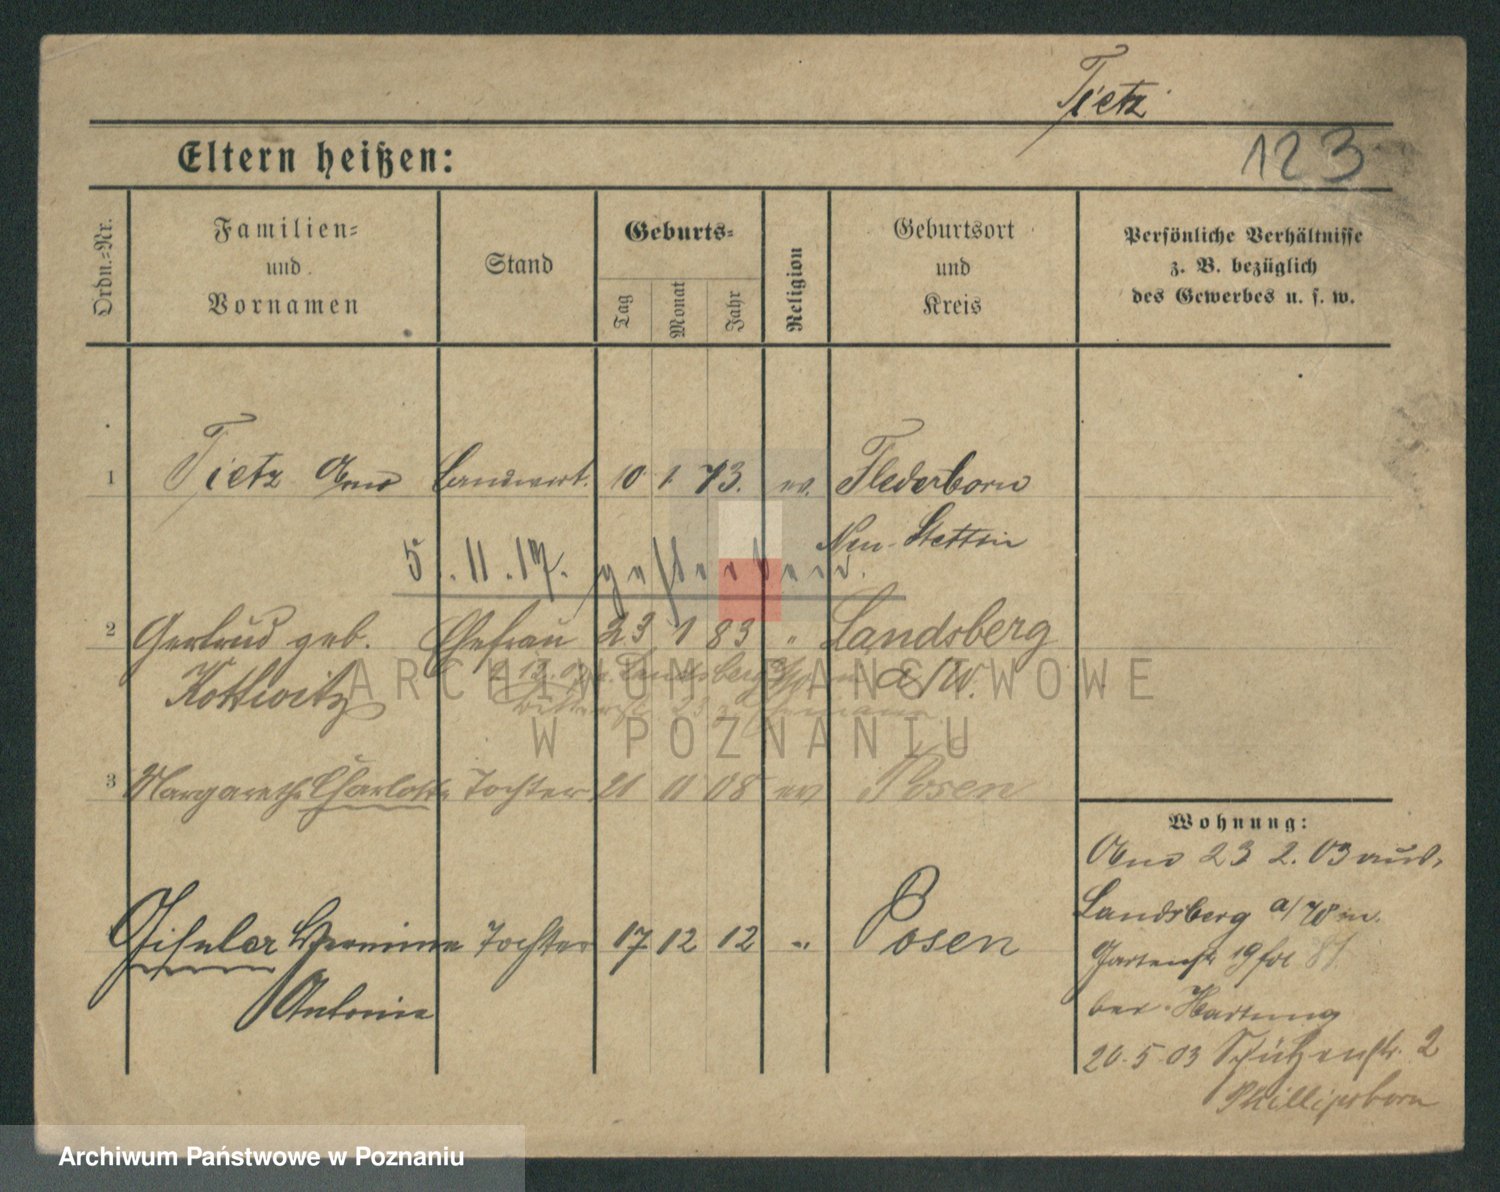 Tietz
123
Eltern heißen:
Ordn.-Nr.
Familien-
und
Vornamen
Stand
Geburts-
Tag
Monat
Jahr
Religion
Geburtsort
und
Kreis
Persönliche Verhältnisse
z. B. bezüglich
des Gewerbes u. s. w.
1 Tietz Arno Landwirt. 10 1. 73. ev. Flederborn
Neu-Stettin
5. 11. 17. gestorben.
2 Gertrud geb. Ehefrau 23 1 83 " Landsberg
Kottwitz a/W.
3 Margarethe Charlotte Tochter 21 11 08 ev Posen
Hermine Tochter 17 12 12 " Posen
Antonie
Wohnung:
Arno 23 2. 03 aus
Landsberg a/W in
Gartenstr 19
bei Hartung
20. 5 03 Schützenstr. 2
Phillipsborn
ARCHIWUM PAŃSTWOWE
W POZNANIU
Archiwum Państwowe w Poznaniu